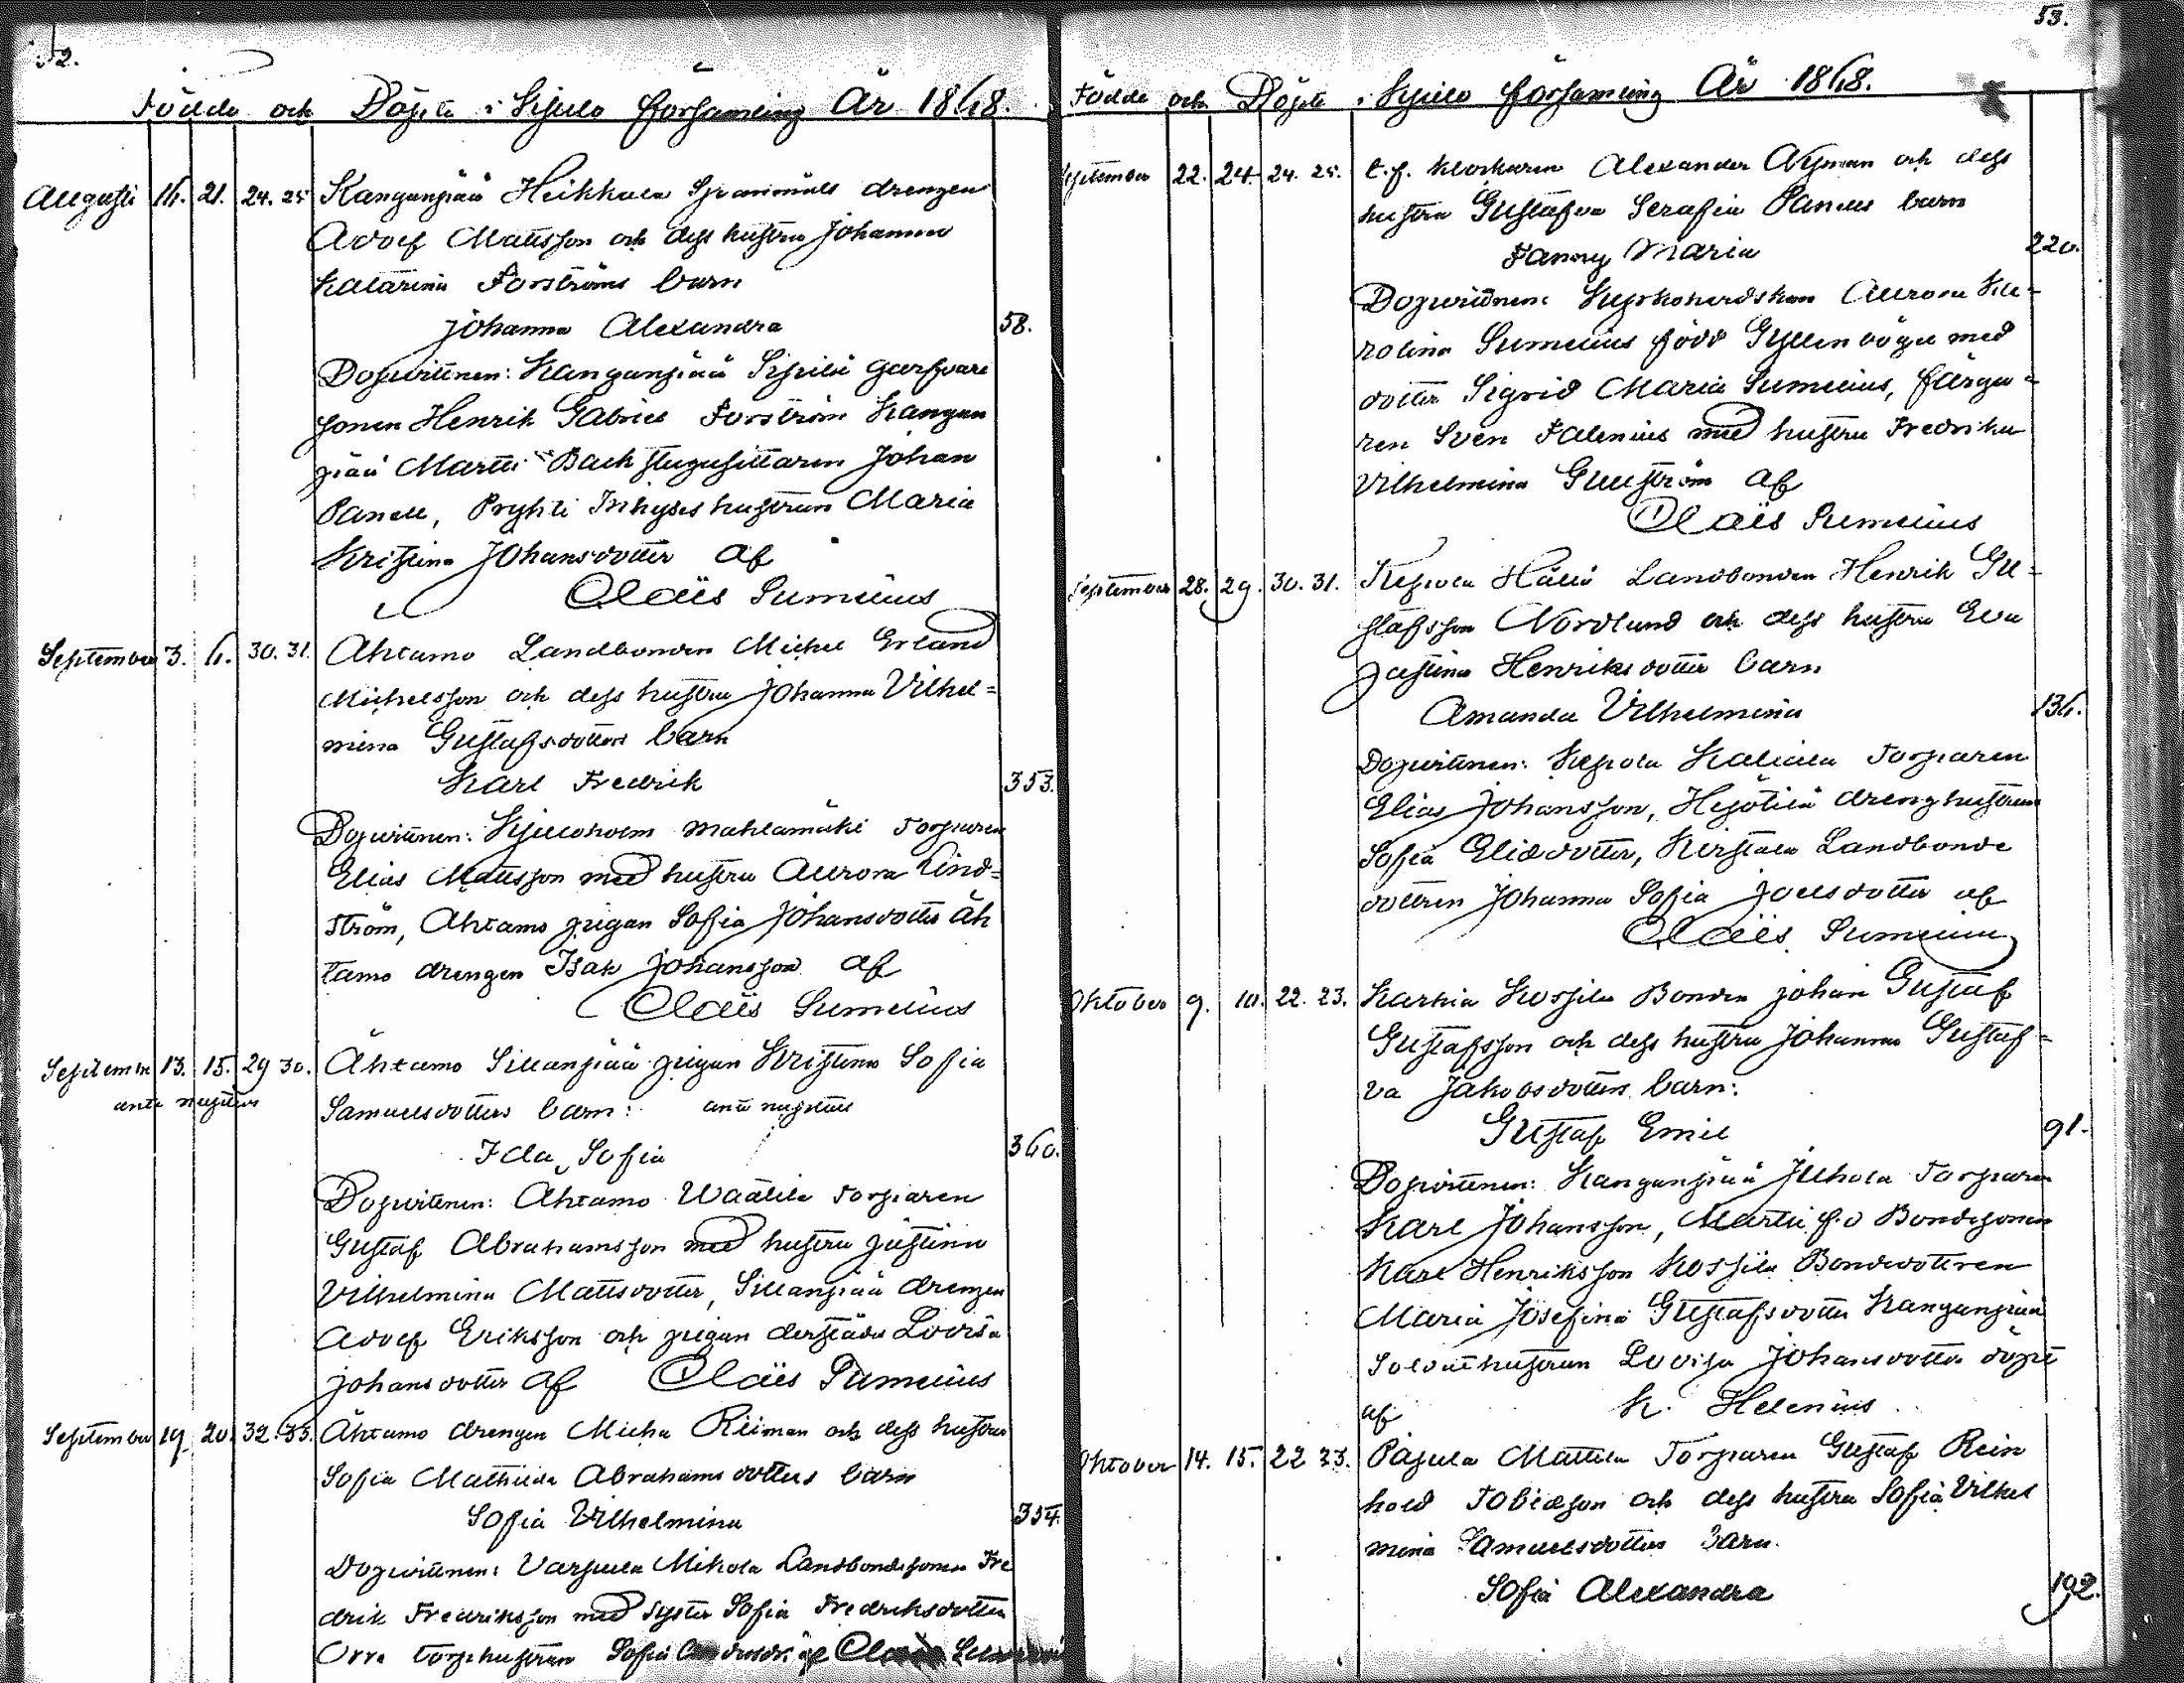 52.
Födde och Döpte i Kjulo församling År 1868.
Augusti 16. 21. 24. 25 Kanganpää Heikkula Spannmåls drengen
Adolf Mattsson och dess hustru Johanna
Katarina Forströms barn
Johanna Alexandra 58.
Dopvittnen: Kanganpää Sipilä garfvare
sonen Henrik Gabriel Forström Kangan
pää Martti Backstugusittaren Johan
Panell, Pryhti Inhyses hustrun Maria
Kristina Johansdotter af
Claës Sumelius
September 3. 6. 30. 31. Ahtamo Landbonden Michel Erland
Michelsson och dess hustru Johanna Vilhel=
mina Gustafsdotters barn
Karl Fredrik 353.
Dopvittnen: Kjuloholm Mahlamäki Torparen
Elias Mattsson med hustru Aurora Lind=
ström, Ahtamo pigan Sofia Johansdotter Äh
tamo drengen Isak Johansson af
Claës Sumelius
September 13. 15. 29 30. Ähtamo Sillanpää pigan Kristina Sofia
ante nuptias
Samuelsdotters barn: ante nuptias
Ida Sofia 360.
Dopvittnen: Ahtamo Wäälilä Torparen
Gustaf Abrahamsson med hustru Justina
Vilhelmina Mattsdotter, Sillanpää drengen
Adolf Eriksson och pigan derstädes Lovisa
Johansdotter af Claës Sumelius
September 19. 20. 32. 33. Ähtamo drengen Micha Riiman och dess hustru
Sofia Mathilda Abrahamsdotters barn
Sofia Vilhelmina 354.
Dopvittnen: Varpula Mikola Landbondesonen Fre
drik Fredriksson med syster Sofia Fredriksdotter
Orre torphustrun Sofia af Claës
53.
Födde och Döpte i Kjulo församling År 1868.
September 22. 24. 24. 25. t.f. klockaren Alexander Nyman och dess
hustru Gustafva Serafia Panelii barn
Fanny Maria 220.
Dopvittnen: Kyrkoherdskan Aurora Ka=
rolina Sumelius född Gyllenbögel med
dotter Sigrid Maria Sumelius, färga=
ren Sven Falenius med hustru Fredrika
Vilhelmina af
Claës Sumelius
September 28. 29. 30. 31. Kepola Landbonden Henrik Gu=
stafsson Nordlund och dess hustru Eva
Justina Henriksdotter barn
Amanda Vilhelmina 136.
Dopvittnen: Kepola Torparen
Elias Johansson, drenghustrun
Sofia Eliedotter, Landbonde
dottren Johanna Sofia Joelsdotter af
Claës Sumelius
Oktober 9. 10. 22. 23. Karhia Kossila Bonden Johan Gustaf
Gustafsson och dess hustru Johanna Gustaf=
va Jakobsdotters barn:
Gustaf Emil 91.
Dopvittnen: Kanganpää Torparen
Karl Johansson, Martti f.d Bondesonen
Karl Henriksson Kossila Bondedottren
Maria Josefina Gustafsdotter Kanganpää
Soldathustrun Lovisa Johansdotter döpt
af K. Helenius
Oktober 14. 15. 22 23. Pajula Mattila Torparen Gustaf Rein
hold Tobiasson och dess hustru Sofia Vilhel
mina Samuelsdotters barn.
Sofia Alexandra 192.